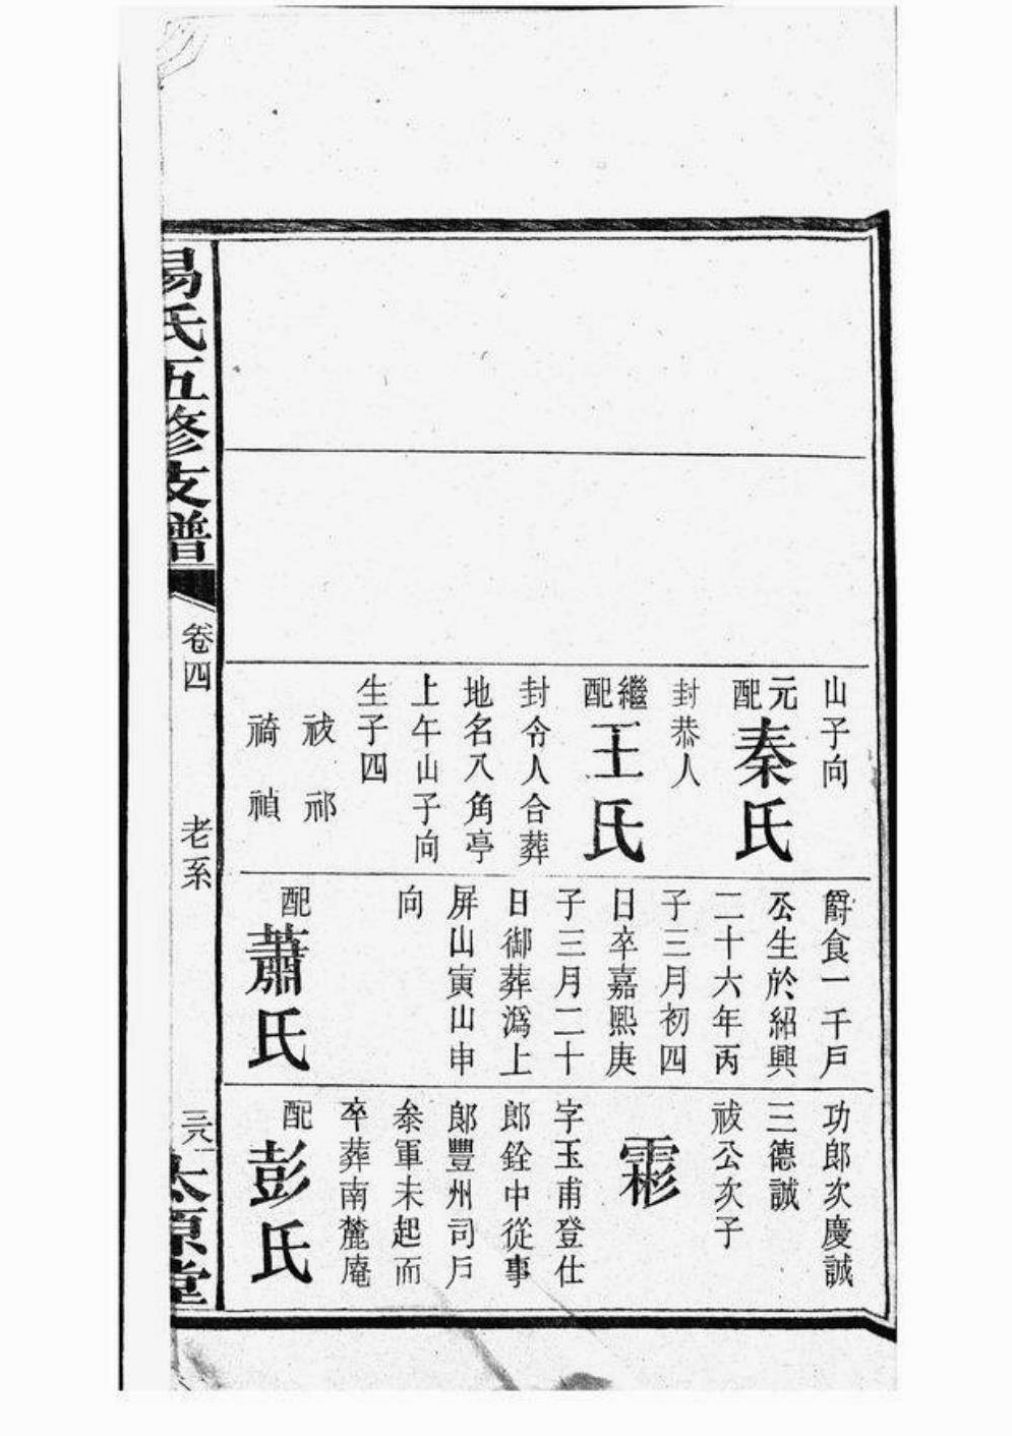 山子向
元配秦氏
封恭人
繼配王氏
封令人合葬
地名八角亭
上午山子向
生子四
祓 祁
禎
爵食一千戶
公生於紹興
二十六年丙
子三月初四
日卒嘉熙庚
子三月二十
日御葬溈上
屏山寅山申
向
配蕭氏
功郎次慶誠
三德誠
祓公次子
霦
字玉甫登仕
郎銓中從事
郎豐州司戶
叅軍未起而
卒葬南麓庵
配彭氏
易氏五修支譜
卷四
老系
太原堂